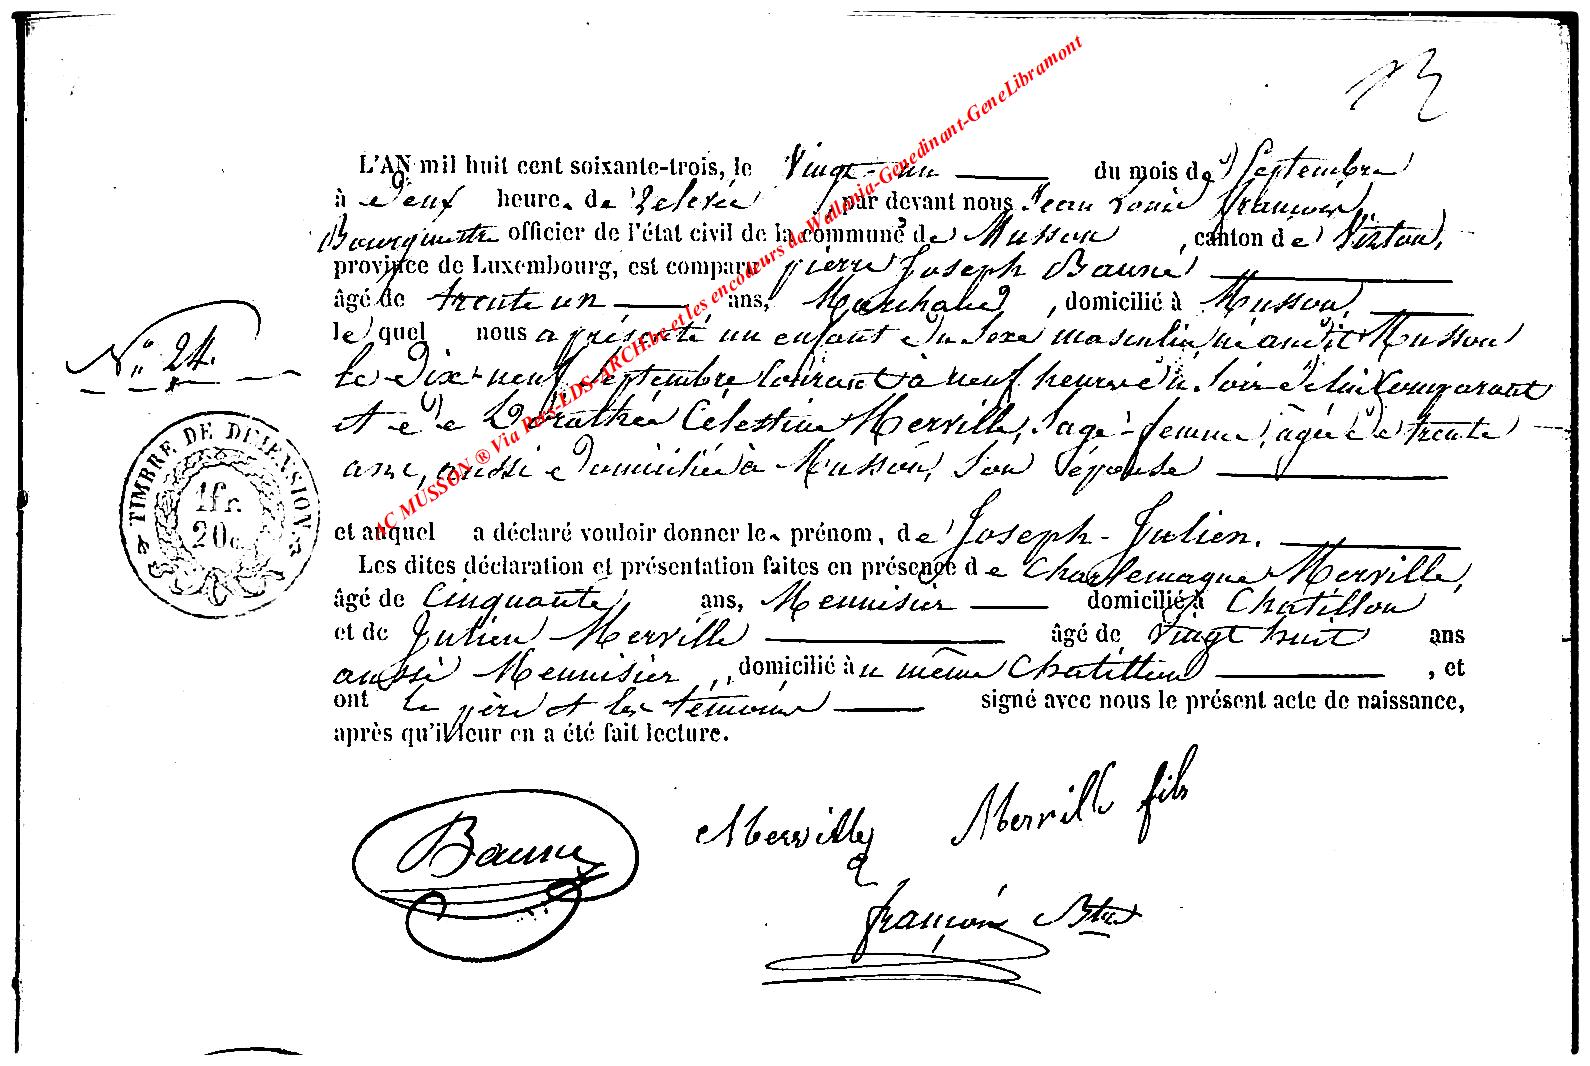 13
L'AN mil huit cent soixante-trois, le Vingt-un du mois de Septembre
à Deux heure. de Relevée par devant nous Jean Louis François,
Bourgmestre officier de l'état civil de la commune de Musson, canton de Virton,
province de Luxembourg, est comparu pierre Joseph Bauné
âgé de trente un ans, Marchand, domicilié à Musson,
le quel nous a présenté un enfant du Sexe masculin, né audit Musson
le Dix-neuf Septembre Courant à neuf heures du Soir de lui Comparant
et de Dorothée Célestine Merville, Sage-femme, âgée de trente
ans, aussi Domiciliée à Musson, Son épouse
et auquel a déclaré vouloir donner le. prénom, de Joseph-Julien.
Les dites déclaration et présentation faites en présence de Charlemagne Merville,
âgé de Cinquante ans, Menuisier domicilié à Chatillon
et de Julien Merville âgé de Vingt huit ans
aussi Menuisier, domicilié au même Chatillon, et
ont le père et les témoins signé avec nous le présent acte de naissance,
après qu'il leur en a été fait lecture.
N° 24.
TIMBRE DE DIMENSION
1 fr.
20 c.
Bauné
Merville
Merville fils
François Btre
AC MUSSON ® Via Pros-EDS-ARCH.be et les encodeurs de Wallonia-Genedinant-GeneLibramont